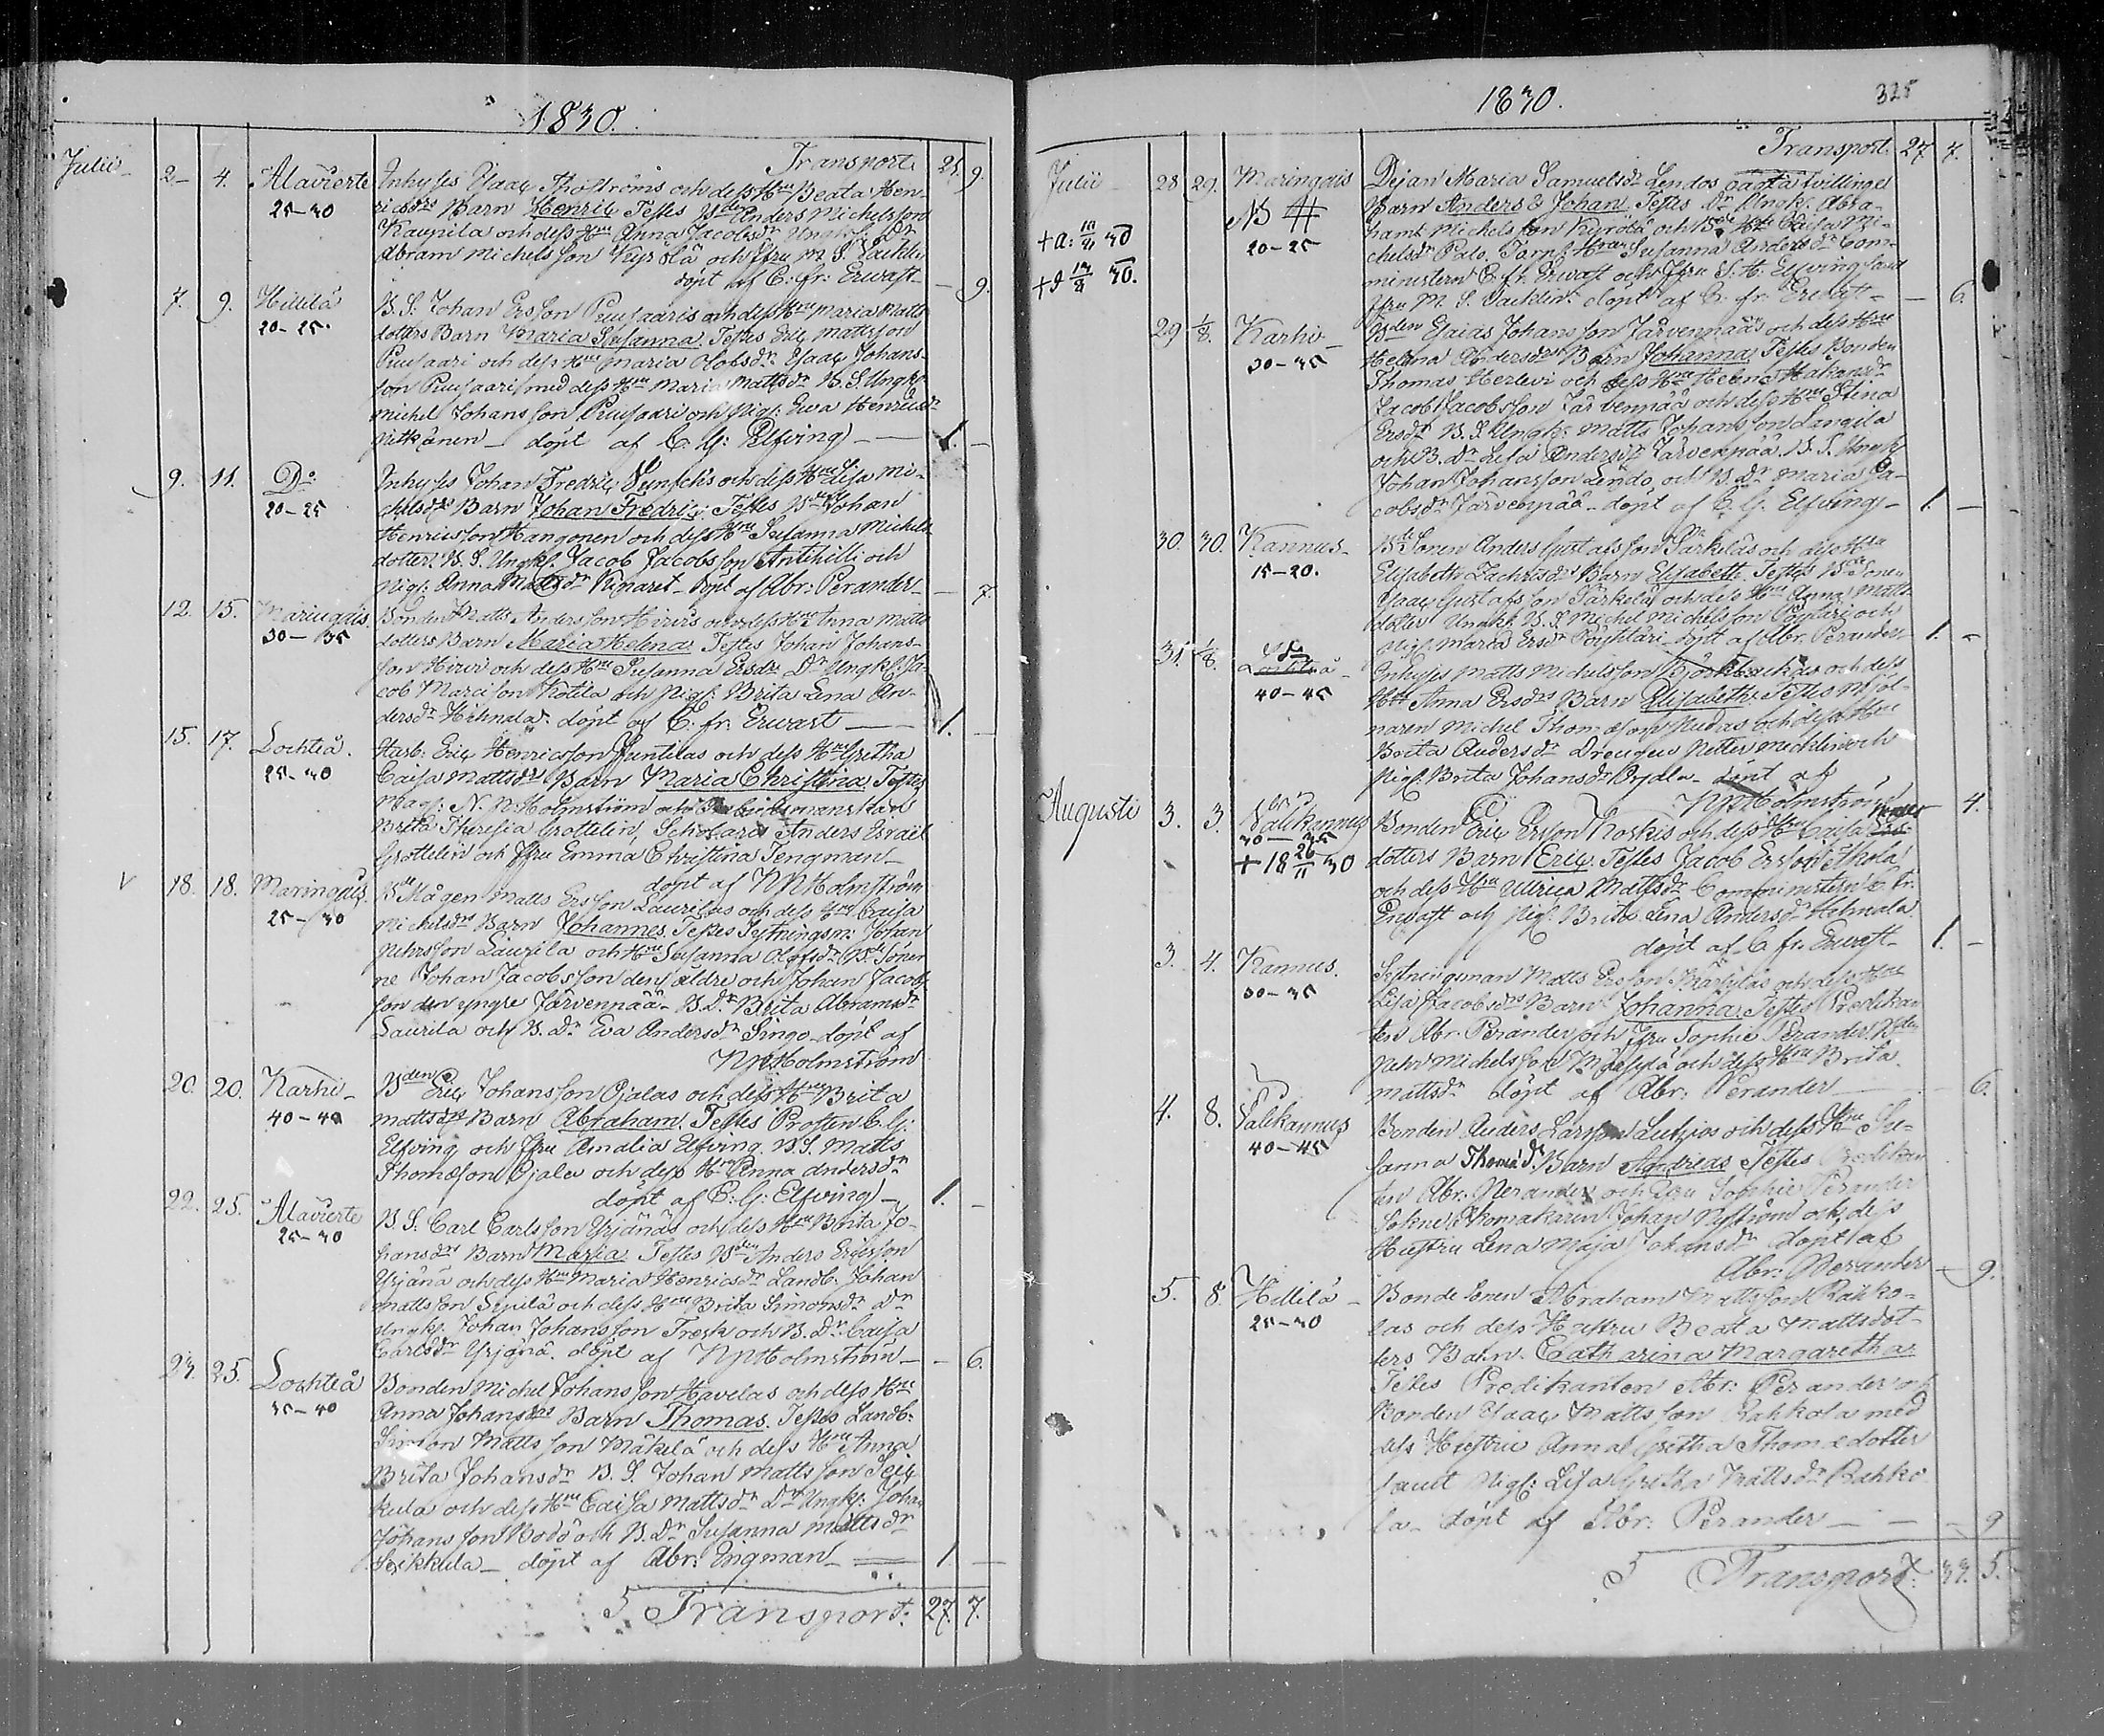 1830.
Transport. 21. 9.
Julii 2 4. Alavierte Inhyses Isaac Thoströms och dess Hru Beata Hen-
25-30 ricsdrs Barn Henric Testes Bden Anders Michelsson
Kaupila och dess Hru Anna Jacobsdr Ungk. Dr
Abram Michelsson Kyrölä och Jfru M. S.
döpt af C. fr. Erwast - 9.
7. 9. Hillilä B. S. Johan Ersson Puusaaris och dess Hru Maria Matts
20-25. dotters Barn Maria Susanna. Testes Eric Mattsson
Puusaari och dess Hru Maria Olofsdr Isaac Johans-
son Puusaari med dess Hru Maria Mattsdr B. S. Ungk.
Michel Johansson Puusaari och Pig. Ewa Henricsdr
Pitkänen - döpt af C. G. Elfving - 1. -
9. 11. Do Inhyses Johan Fredric och dess Hru Lisa Mi-
20-25 chelsdrs Barn Johan Fredric. Testes Bden Johan
Henricsson Hangonen och dess Hru Susanna Michels
dotter. B. S. Ungk. Jacob Jacobsson Anttihilli och
Pig. Anna Mattsdr döpt af Abr. Perander - 7.
12. 15. Maringais Bonden Matts Andersson Hirvis och dess Hru Anna Matts
30-35 dotters Barn Maria Helena. Testes Johan Johans-
son Hirvi och dess Hru Susanna Ersdr Dr Ungk. Ja-
cob Marcisson Kotila och Pig. Brita Lena An-
dersdr Helmala. döpt af C. fr. Erwast - 1. -
15. 17. Lochteå. Eric Henricsson Juntilas och dess Hru Gretha
25-30 Caisa Mattsdrs Barn Maria Christina. Testes
Mag. N. P. Holmström och
Brita Theresia Grottelin, Scholaris Anders Israel
Grottelin och Jfru Emma Christina Tengman -
döpt af NPHolmström
18. 18. Maringais Mågen Matts Ersson Laurilas och dess Hru Caisa
25-30 Michelsdrs Barn Johannes. Testes Sytningsm. Johan
Pehrsson Laurila och Hru Susanna Olofsdr Söner
ne Johan Jacobsson den äldre och Johan Jacobs
son den yngre Järvenpää. B. Dr Brita Abramsdr
Laurila och B. Dr Eva Andersdr Lingo döpt af
NPHolmström
20. 20. Karhi Bden Eric Johansson Ojalas och dess Hru Brita
40-40 Mattsdrs Barn Abraham. Testes Prosten C. G.
Elfving och Jfru Amalia Elfving. B. S. Matts
Thomsson Ojala och dess Hru Anna Andersdr
döpt af C. G. Elfving - 1. -
22. 25. Alavierte B. S. Carl Carlsson Yrjänäs och dess Hru Brita Jo-
25-30 hansdrs Barn Maria. Testes Bden Anders Ericsson
Yrjänä och dess Hru Maria Henricsdr Landb. Johan
Mattsson och dess Hru Brita Simonsdr Dr
Ungk. Johan Johansson Tresk och B. Dr Caisa
Carlsdr Yrjänä. döpt af NPHolmström - 6.
23. 25. Lochteå Bonden Michel Johansson Havelas och dess Hru
35-40 Anna Johansdrs Barn Thomas. Testes Landb.
Simon Mattsson Mäkelä och dess Hru Anna
Brita Johansdr B. S. Johan Mattsson Seik
kula och dess Hru Caisa Mattsdr Dr Ungk. Johan
Johansson Bodö och B. Dr Susanna Mattsdr
Seikkula - döpt af Abr. Engman - 1. -
Transport: 27. 7.
1830. 325
Transport 27. 7.
Julii 28 29. Maringais Pejan Maria Samuelsdr Lendos oächta tvillinge
NB Barn Anders & Johan Testes Dr Ungk. Abra-
+a: 30 ham Michelsson Kyrölä och Caisa Mi-
20-25 chelsdr Palo. Hru Susanna Andersdr Com-
+J 30. ministern C. fr. Erwast och Jfru S. H. Elfving samt
Jfru M. S. döpt af C. fr. Erwast - 6.
29 1/8. Karhi Bden Esaias Johansson Järvenpääs och dess Hru
30-35 Helena Andersdrs Barn Johanna. Testes Bonden
Thomas Herlevi och dess Hru Helena Håkansdr
Jacob Jacobsson Järvenpää och dess Hru Stina
Ersdr B. S. Ungk. Matts Johansson Langila
och B. Dr Lisa Andersdr Järvenpää B. S. Ungk
Johan Johansson Lendo och B. Dr Maria Ja-
cobsdr Järvenpää - döpt af C. G. Elfving - 1. -
30. 30. Kannus Sonen Anders Gustafsson Parkelas och dess Hru
15-20. Elisabeth Zachrisdrs Barn Elisabeth. Testes Sonen
Isaac Gustafsson Parkela och dess Hru Anna Matts
dotter Ungk. B. S. Michel Michelsson och
Pig. Maria Ersdr döpt af Abr. Perander 1. -
31. 1/8. Lochteå Inhyses Matts Michelsson Björkbackas och dess
40-45 Hru Anna Ersdrs Barn Elisabeth. Testes Mjöl-
naren Michel Thomasson Rudas och dess Hru
Beata Andersdr Drengen Petter Micklin och
Pig. Brita Johansdr Orjala - döpt af
NPHolmström 4.
Augusti 3. 3. Välikannus Bonden Eric Ersson Koskis och dess Hru Caisa Matts
30-35 dotters Barn Eric. Testes Jacob Ersson Skola
+ 18 26/11 30 och dess Hru Ullrica Mattsdr Comministern C. fr.
Erwast och Pig. Brita Lena Andersdr Helmala
döpt af C. fr. Erwast - 1. -
3. 4. Kannus. Sytningsman Matts Ersson Märsyläs och dess Hru
30-35 Lisa Jacobsdrs Barn Johanna. Testes Predikan
ten Abr. Perander och Jfru Sophie Perander. Bden
Pehr Michelsson och dess Hru Brita
Mattsdr döpt af Abr. Perander - 6.
4. 8. Välikannus Bonden Anders Larsson och dess Hru Su-
40-45 sanna Thomædr Barn Andreas Testes Predikan
ten Abr. Perander och Jfru Sophie Perander
Sockne Skomakaren Johan Nyström och dess
Hustru Lena Maja Johansdr döpt af
Abr. Perander - 9.
5. 8. Hillilä Bonde Sonen Abraham Mattsson Rahko-
25-30 las och dess Hustru Beata Mattsdot-
ters Barn Catharina Margaretha.
Testes Predikanten Abr. Perander och
Bonden Isaac Mattsson Rahkola med
dess Hustru Anna Gretha Thomædotter
samt Pig. Lisa Gretha Mattsdr Rahko
la - döpt af Abr. Perander - 9
Transport: 33. 5.